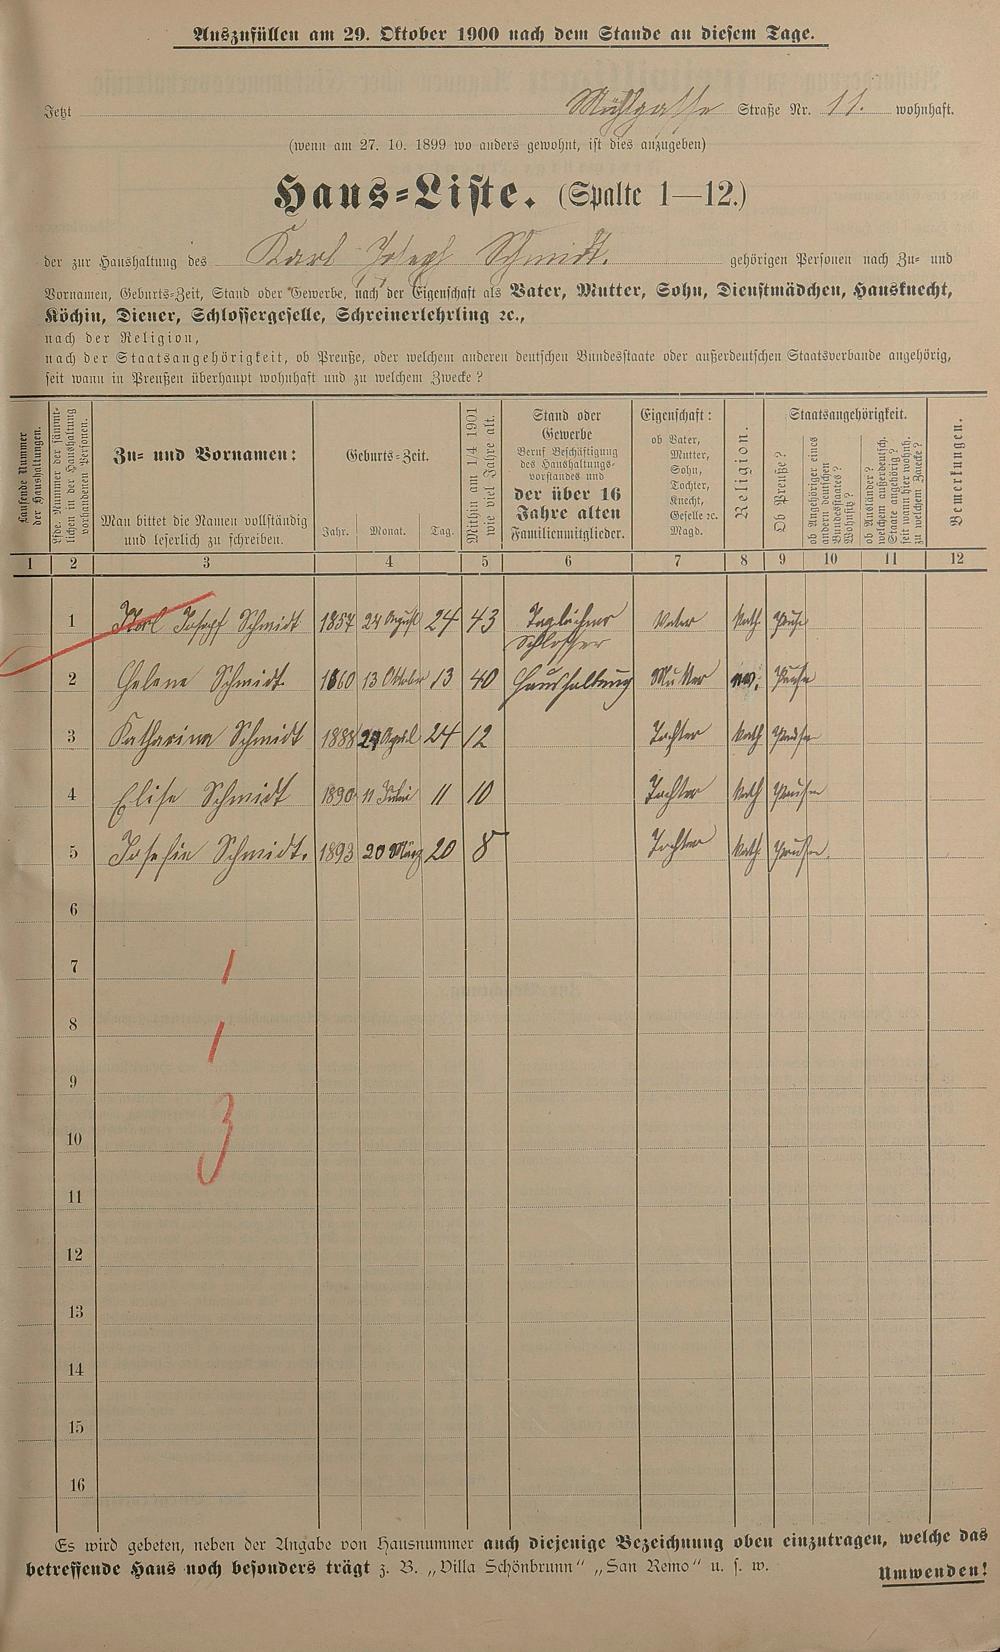 Auszufüllen am 29. Oktober 1900 nach dem Stande an diesem Tage.
Jetzt Mühlgasse Straße Nr. 11. wohnhaft.
(wenn am 27. 10. 1899 wo anders gewohnt, ist dies anzugeben)
Haus=Liste. (Spalte 1—12.)
der zur Haushaltung des Karl Joseph Schmidt. gehörigen Personen nach Zu= und
Vornamen, Geburts=Zeit, Stand oder Gewerbe, nach der Eigenschaft als Vater, Mutter, Sohn, Dienstmädchen, Hausknecht,
Köchin, Diener, Schlossergeselle, Schreinerlehrling ꝛc.,
nach der Religion,
nach der Staatsangehörigkeit, ob Preuße, oder welchem anderen deutschen Bundesstaate oder außerdeutschen Staatsverbande angehörig,
seit wann in Preußen überhaupt wohnhaft und zu welchem Zwecke?
Laufende Nummer
der Haushaltungen.
Lfde. Nummer der sämmt-
lichen in der Haushaltung
vorhandenen Personen.
Zu= und Vornamen:
Man bittet die Namen vollständig
und leserlich zu schreiben.
Geburts=Zeit.
Jahr. Monat. Tag.
Mithin am 1/4 1901
wie viel Jahre alt.
Stand oder
Gewerbe
Beruf Beschäftigung
des Haushaltungs-
vorstandes und
der über 16
Jahre alten
Familienmitglieder.
Eigenschaft:
ob Vater,
Mutter,
Sohn,
Tochter,
Knecht,
Geselle ꝛc.
Magd.
Religion.
Staatsangehörigkeit.
Ob Preuße?
ob Angehöriger eines
andern deutschen
Bundesstaates?
Wohnsitz?
ob Ausländer?
welchem außerdeutsch.
Staate angehörig?
seit wann hier wohnh.
zu welchem Zwecke?
Bemerkungen.
1 2 3 4 5 6 7 8 9 10 11 12
1 Karl Josepf Schmidt 1857 24 August 24 43 Taglöhner Vater kath Preuße
Schlosser
2 Helene Schmidt 1860 13 Oktober 13 40 Haushaltung Mutter ev. Preuße
3 Katharina Schmidt 1888 24 April 24 12 Tochter kath Preußen
4 Elise Schmidt 1890 11 Juli 11 10 Tochter kath Preußen
5 Josefin Schmidt. 1893 20 März 20 8 Tochter kath. Preußen.
6
7 1
8 1
9
10 3
11
12
13
14
15
16
Es wird gebeten, neben der Angabe von Hausnummer auch diejenige Bezeichnung oben einzutragen, welche das
betreffende Haus noch besonders trägt z. B. „Villa Schönbrunn“ „San Remo“ u. s. w.
Umwenden!